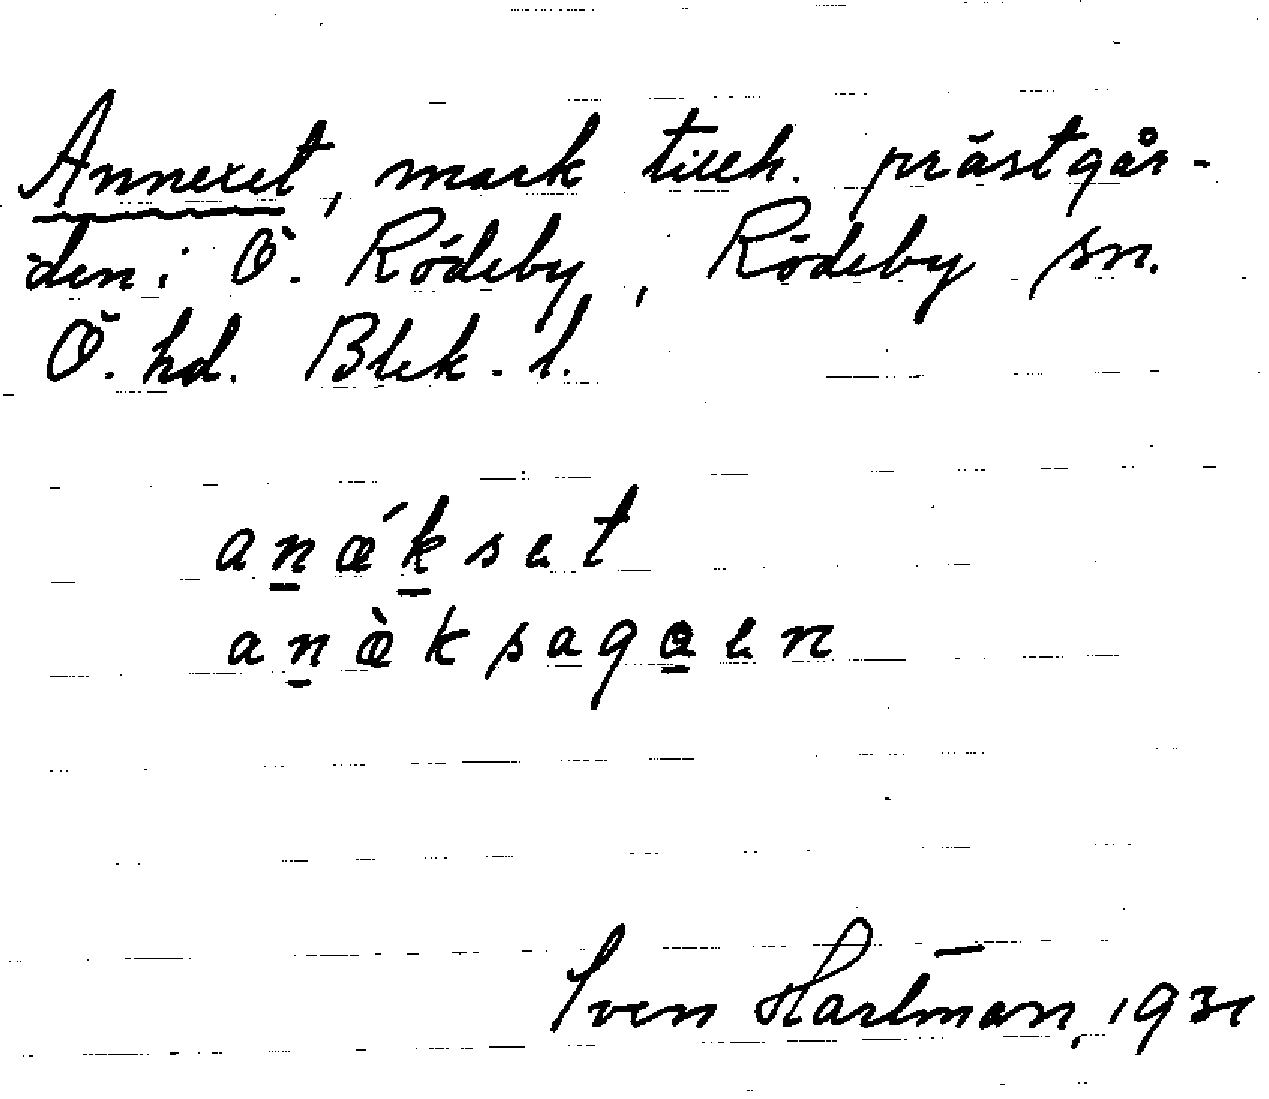 Annexet, mark tillh. prästgår-
den i Ö. Rödeby, Rödeby sn.
Ö. hd. Blek. l.
anǽkset
anæ̀ksagaen
Sven Hartman, 1931